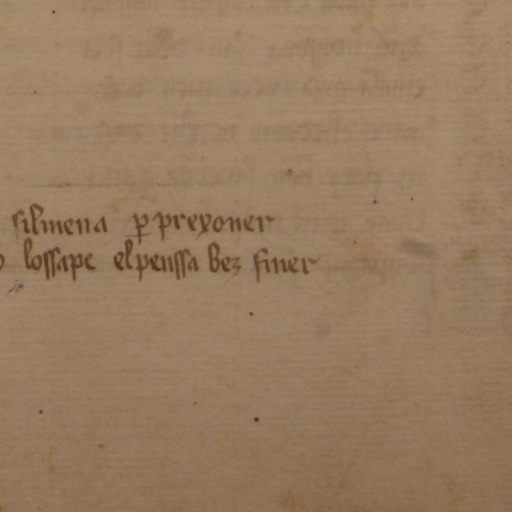 silmena ꝑ prexoner
lossape elpenssa bez finer